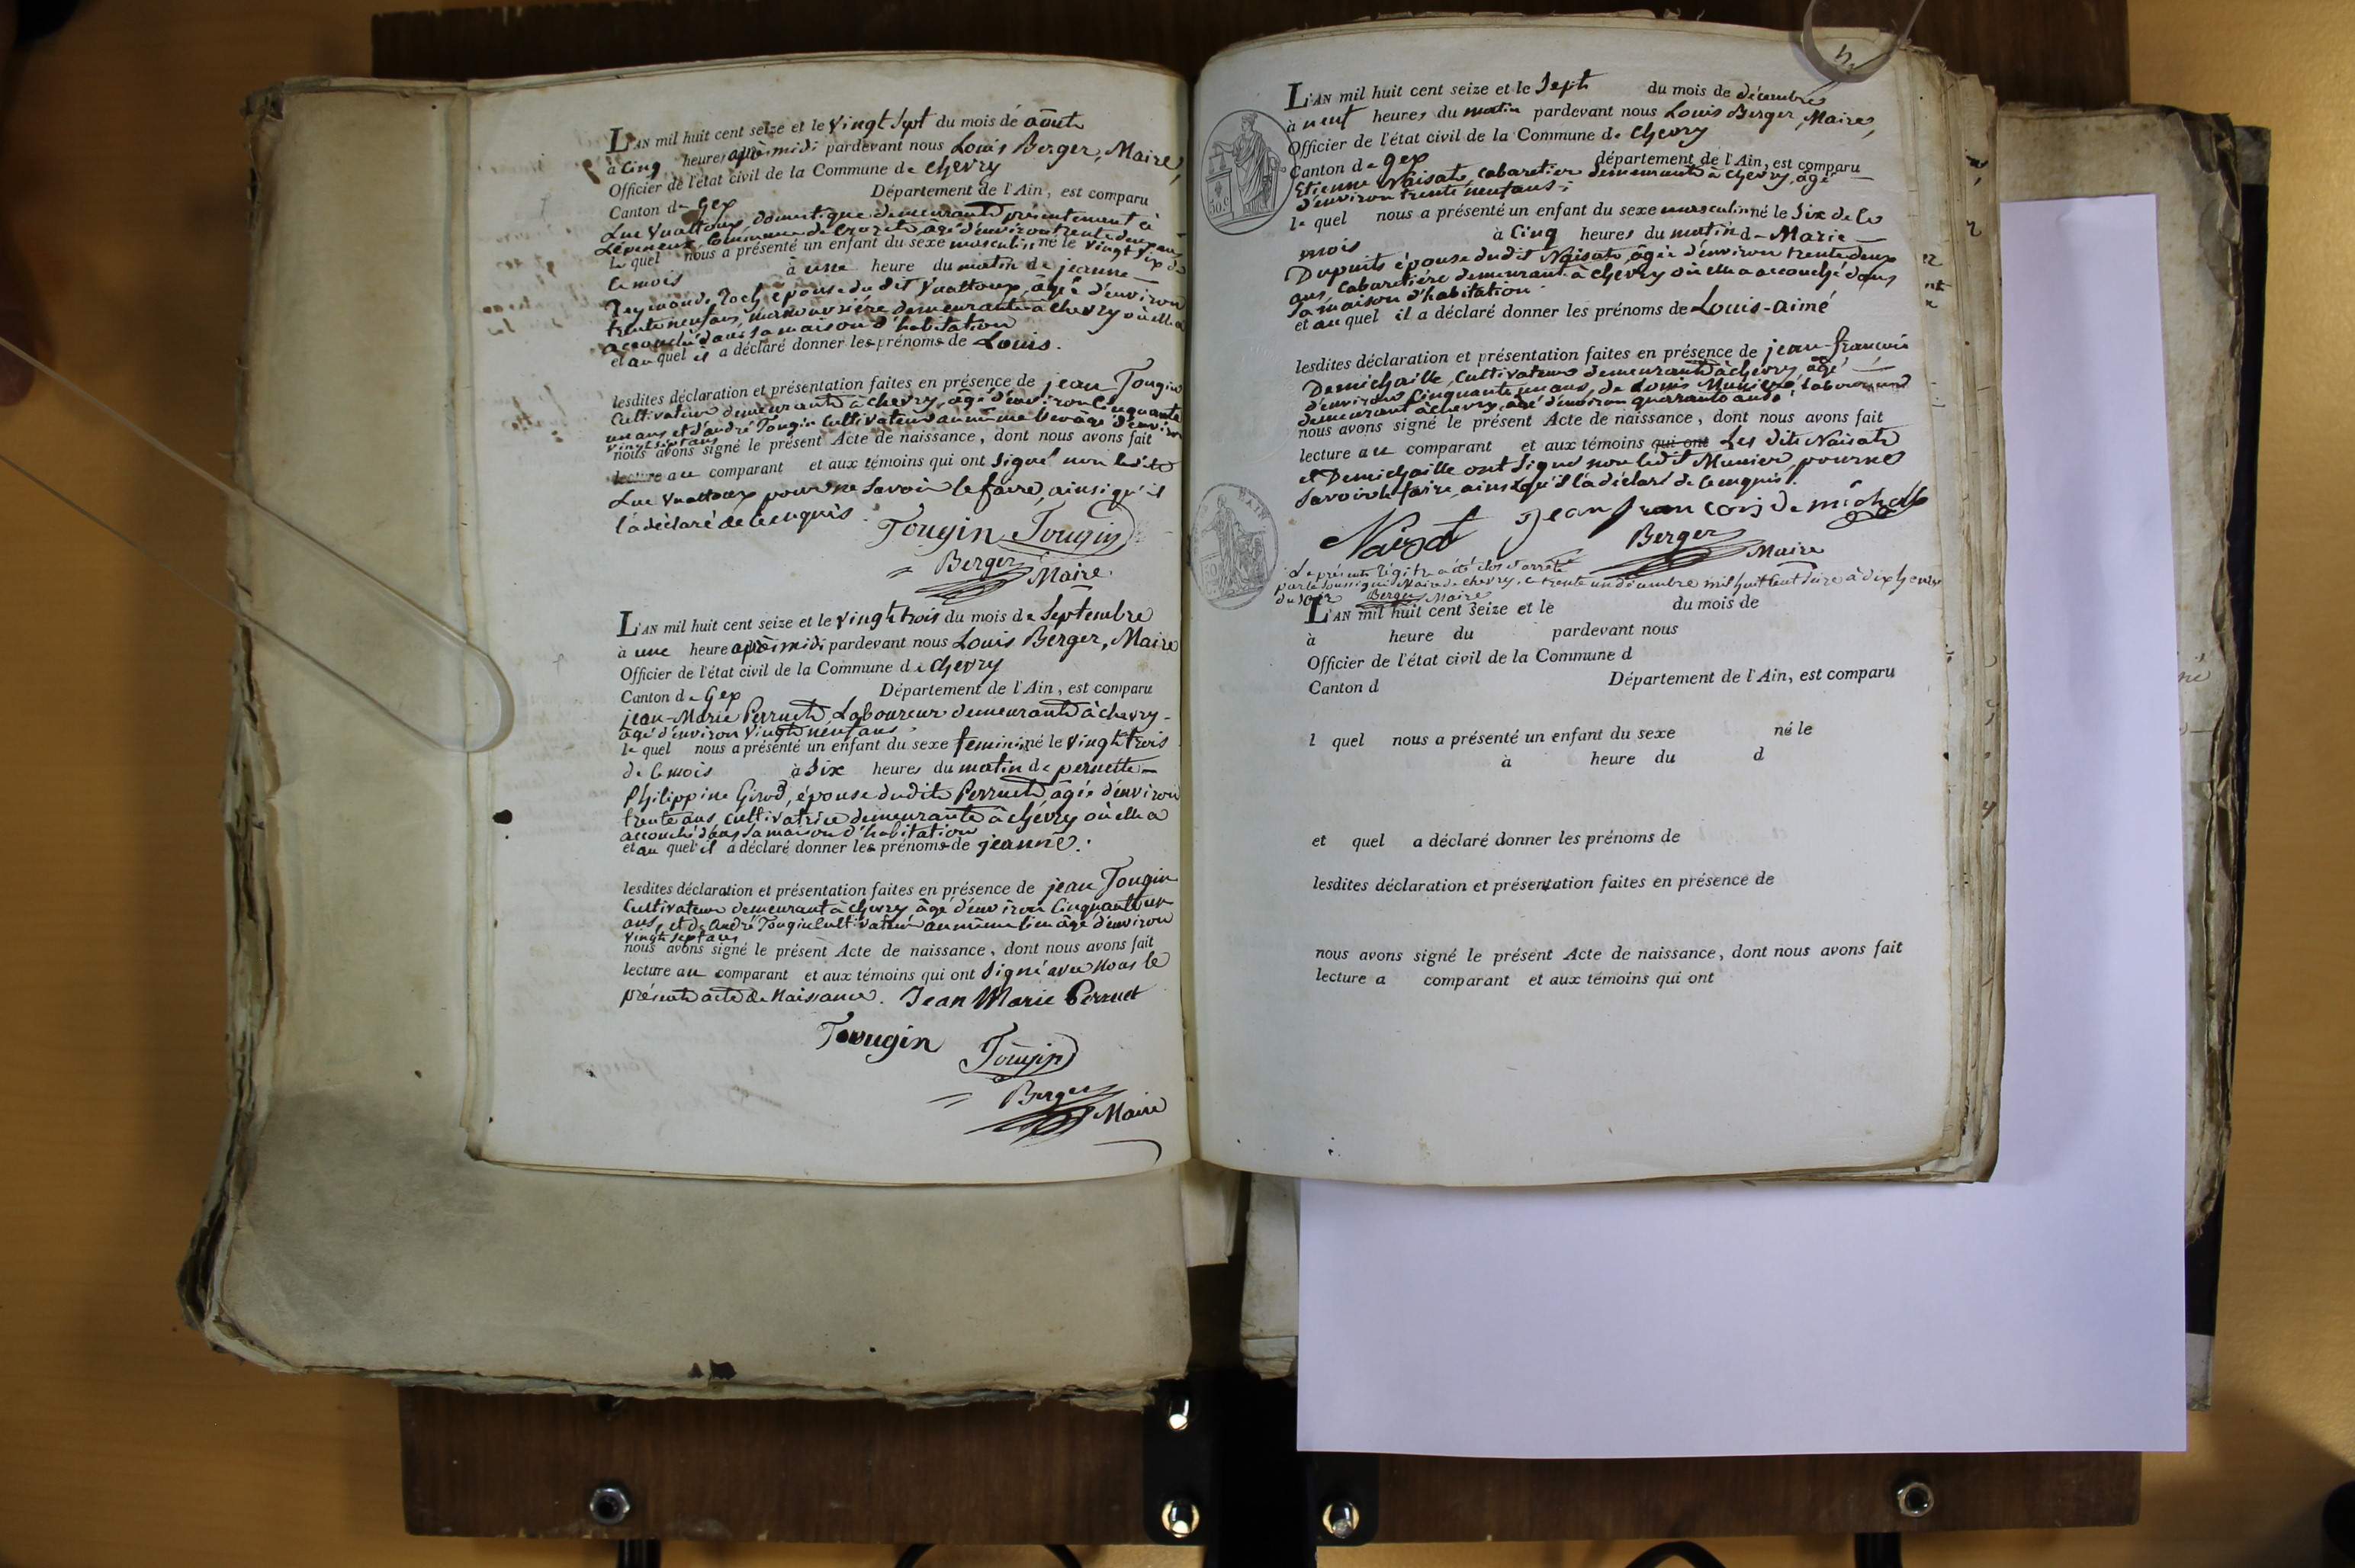 L'AN mil huit cent seize et le vingt sept du mois de août
à cinq heures après midi pardevant nous Louis Berger, Maire,
Officier de l'état civil de la Commune de chevry
Canton de Gex Département de l'Ain, est comparu
Luc Vuattoux, domestique demeurant présentement à
commune de Crozet, âgé d'environ trente deux ans
le quel nous a présenté un enfant du sexe masculin né le vingt six de
ce mois à une heure du matin de jeanne
Reymonde Roch, épouse du dit Vuattoux, âgée d'environ
trente neuf ans, manouvrière demeurante à chevry où elle a
accouché dans sa maison d'habitation
et au quel il a déclaré donner les prénoms de Louis.
lesdites déclaration et présentation faites en présence de jean Tougin
Cultivateur demeurant à chevry, âgé d'environ cinquante
un ans et d'andré Tougin Cultivateur au même lieu âgé d'environ
vingt sept ans
nous avons signé le présent Acte de naissance, dont nous avons fait
lecture au comparant et aux témoins qui ont signé non ledit
Luc Vuattoux pour ne savoir le faire, ainsi qu'il
l'a déclaré de ce enquis.
Tougin Tougin
Berger Maire.
L'AN mil huit cent seize et le vingt trois du mois de Septembre
à une heure après midi pardevant nous Louis Berger, Maire
Officier de l'état civil de la Commune de chevry
Canton de Gex Département de l'Ain, est comparu
jean-Marie Perruet, Laboureur demeurant à chevry
âgé d'environ vingt neuf ans
le quel nous a présenté un enfant du sexe feminin né le vingt trois
de ce mois à six heures du matin de pernette
Philippine Girod, épouse dudit Perruet, âgée d'environ
trente ans, cultivatrice demeurante à chévry où elle a
accouché dans sa maison d'habitation
et au quel il a déclaré donner les prénoms de jeanne.
lesdites déclaration et présentation faites en présence de jean Tougin
Cultivateur demeurant à chevry, âgé d'environ Cinquante un
ans, et de andré Tougin Cultivateur au même lieu âgé d'environ
vingt sept ans
nous avons signé le présent Acte de naissance, dont nous avons fait
lecture au comparant et aux témoins qui ont signé avec nous le
présent acte de Naissance. Jean Marie Perruet
Tougin Tougin
Berger
Maire
L'AN mil huit cent seize et le sept du mois de décembre
à neuf heures du matin pardevant nous Louis Berger, Maire,
Officier de l'état civil de la Commune de chevry
Canton de gex département de l'Ain, est comparu
Etienne Naisat, cabaretier demeurant à chevry, âgé
d'environ trente neuf ans;
le quel nous a présenté un enfant du sexe masculin né le six de ce
mois à cinq heures du matin de Marie
Dupuits épouse dudit Naisat, âgée d'environ trente deux
ans, cabaretière demeurant à chevry où elle a accouché dans
sa maison d'habitation
et au quel il a déclaré donner les prénoms de Louis-aimé
lesdites déclaration et présentation faites en présence de jean-françois
Demichaille, Cultivateur demeurant à chevry, âgé
d'environ Cinquante un ans, de Louis Munier, laboureur
demeurant à chevry, âgé d'environ quarante ans
nous avons signé le présent Acte de naissance, dont nous avons fait
lecture au comparant et aux témoins qui ont Les dits Naisat
et Demichaille ont signé non ledit Munier, pour ne
savoir le faire, ainsi qu'il l'a déclaré de ce enquis.
Naizat jean francois demichalle
Berger Maire
Le présent Régitre a été clos et arrêté
par le soussigné Maire de chevry, ce trente un décembre mil huit cent seize à dix heures
du soir Berger Maire
L'AN mil huit cent seize et le du mois de
à heure du pardevant nous
Officier de l'état civil de la Commune d
Canton d Département de l'Ain, est comparu
l quel nous a présenté un enfant du sexe né le
à heure du d
et quel a déclaré donner les prénoms de
lesdites déclaration et présentation faites en présence de
nous avons signé le présent Acte de naissance, dont nous avons fait
lecture a comparant et aux témoins qui ont